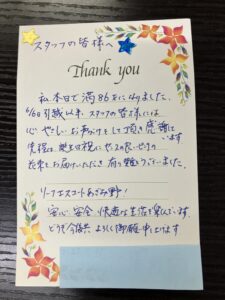 スタッフの皆様へ
Thank you
私、本日で満86才になりました。
6/6日引越以来スタッフの皆様には
心やさしいお声がけをして頂き感謝
します
先程は誕生日祝にサーヨの
花束をお届けいただき有り難うございました。
リーフエスコートあざみ野!
安心安全、快適な生活を楽しんでいます
どうぞ今後共よろしく御願い申し上げます